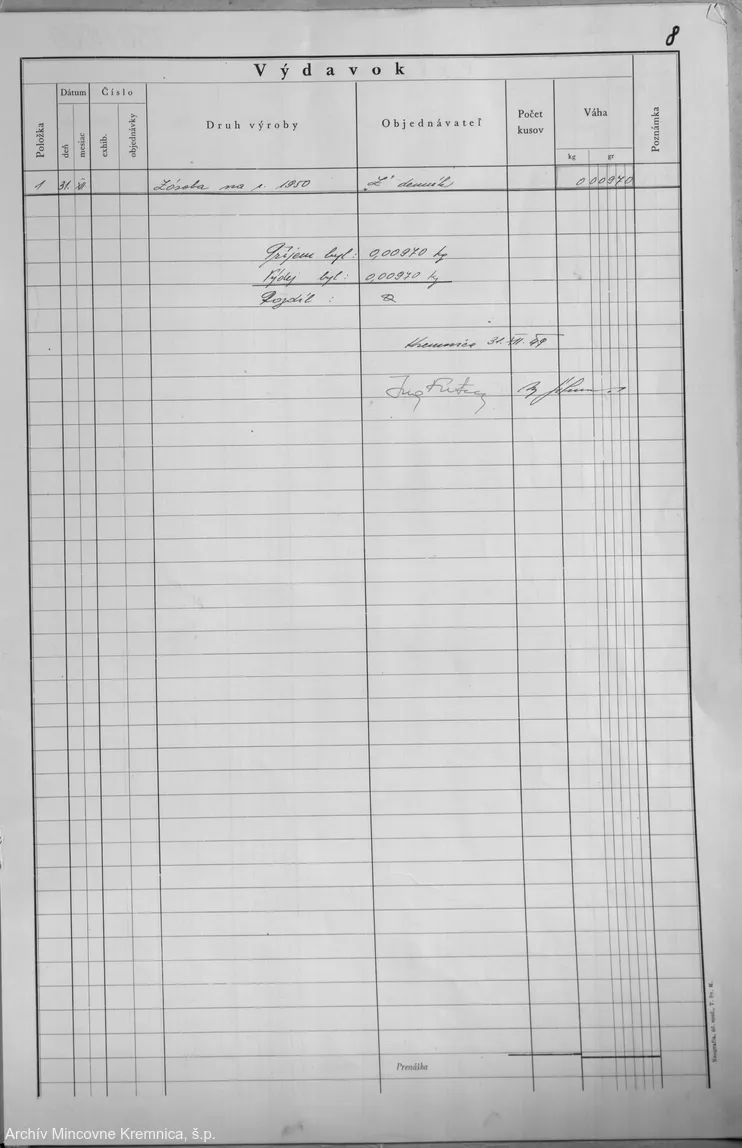 8
Výdavok
Položka
Dátum
deň
mesiac
Číslo
exhib.
objednávky
Druh výroby
Objednávateľ
Počet kusov
Váha
kg
gr
Poznámka
1 31. XII Zásoba na r. 1950 "Z" denník 0 00970
Příjem byl: 0,00970 kg
Výdej byl: 0,00970 kg
Rozdíl :
Kremnica 31. XII. 49
Ing
Prenáška
Neografia, úč. spol., T. Sv. M.
Archív Mincovne Kremnica, š.p.